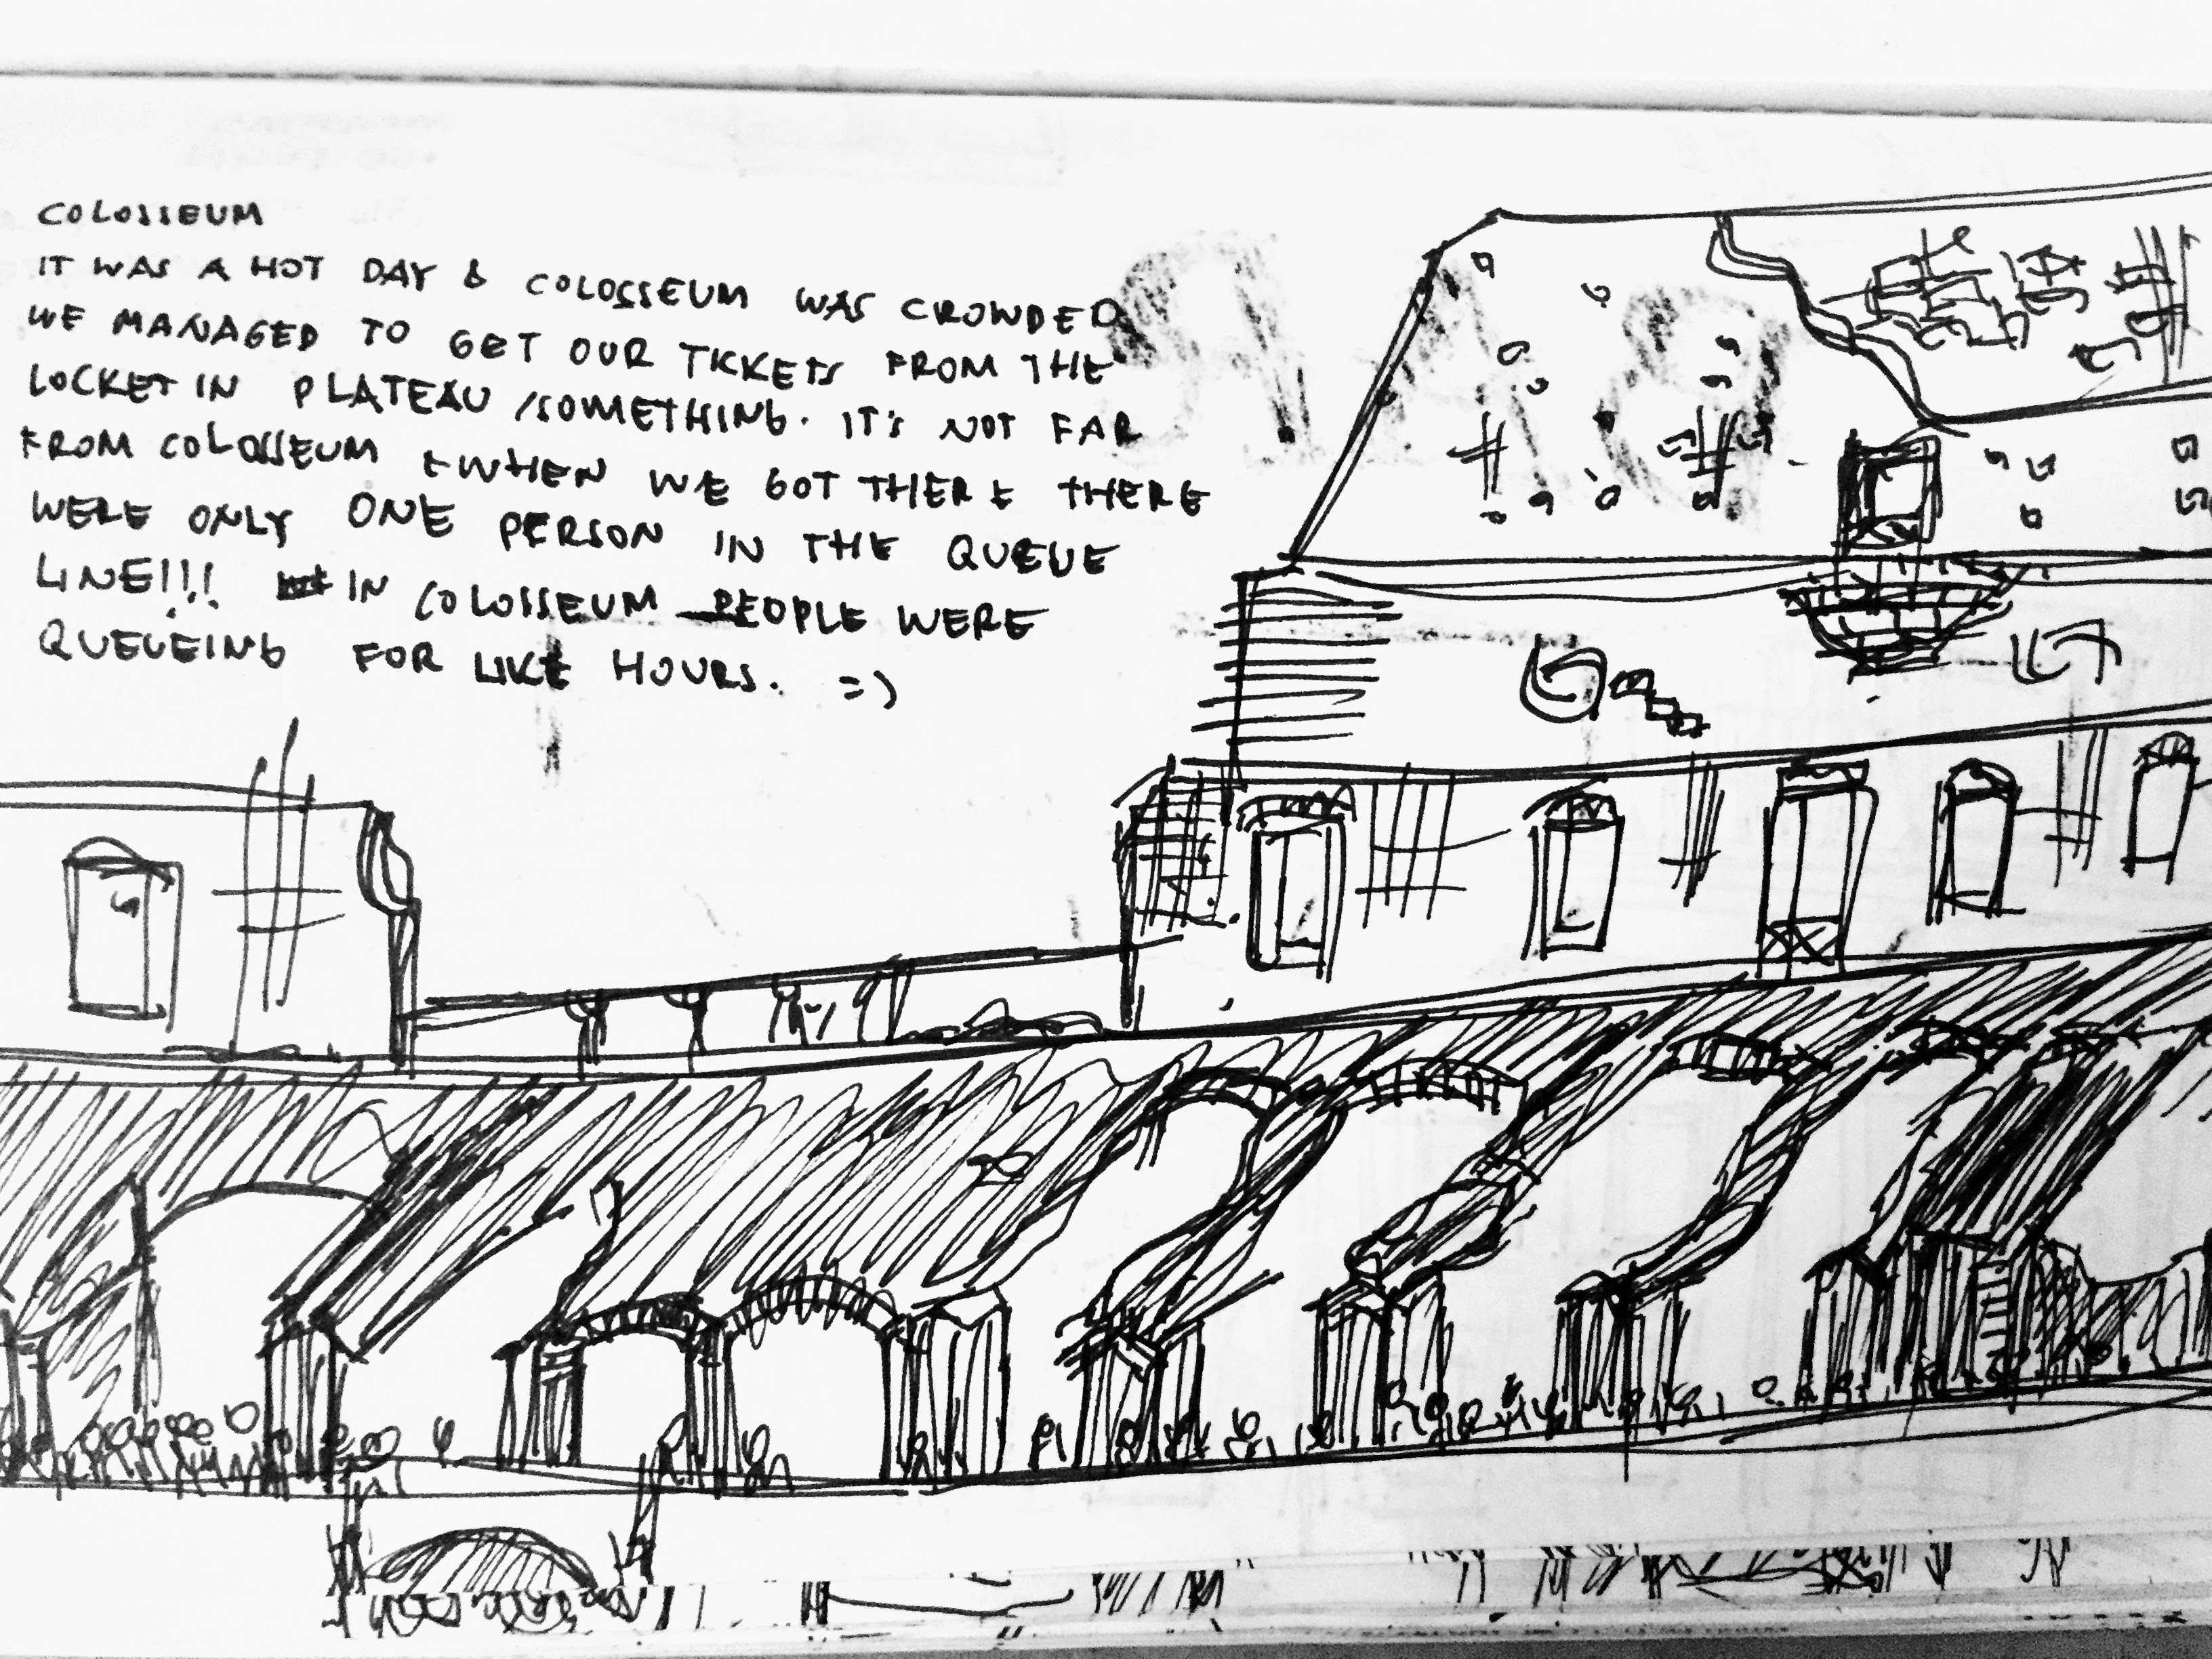 COLOSSEUM
IT WAS A HOT DAY & COLOSSEUM WAS CROWDED
WE MANAGED TO GET OUR TICKETS FROM THE
LOCKET IN PLATEAU /SOMETHING. IT'S NOT FAR
FROM COLOSSEUM + WHEN WE GOT THERE THERE
WERE ONLY ONE PERSON IN THE QUEUE
LINE!!! IN COLOSSEUM PEOPLE WERE
QUEUEING FOR LIKE HOURS. =)